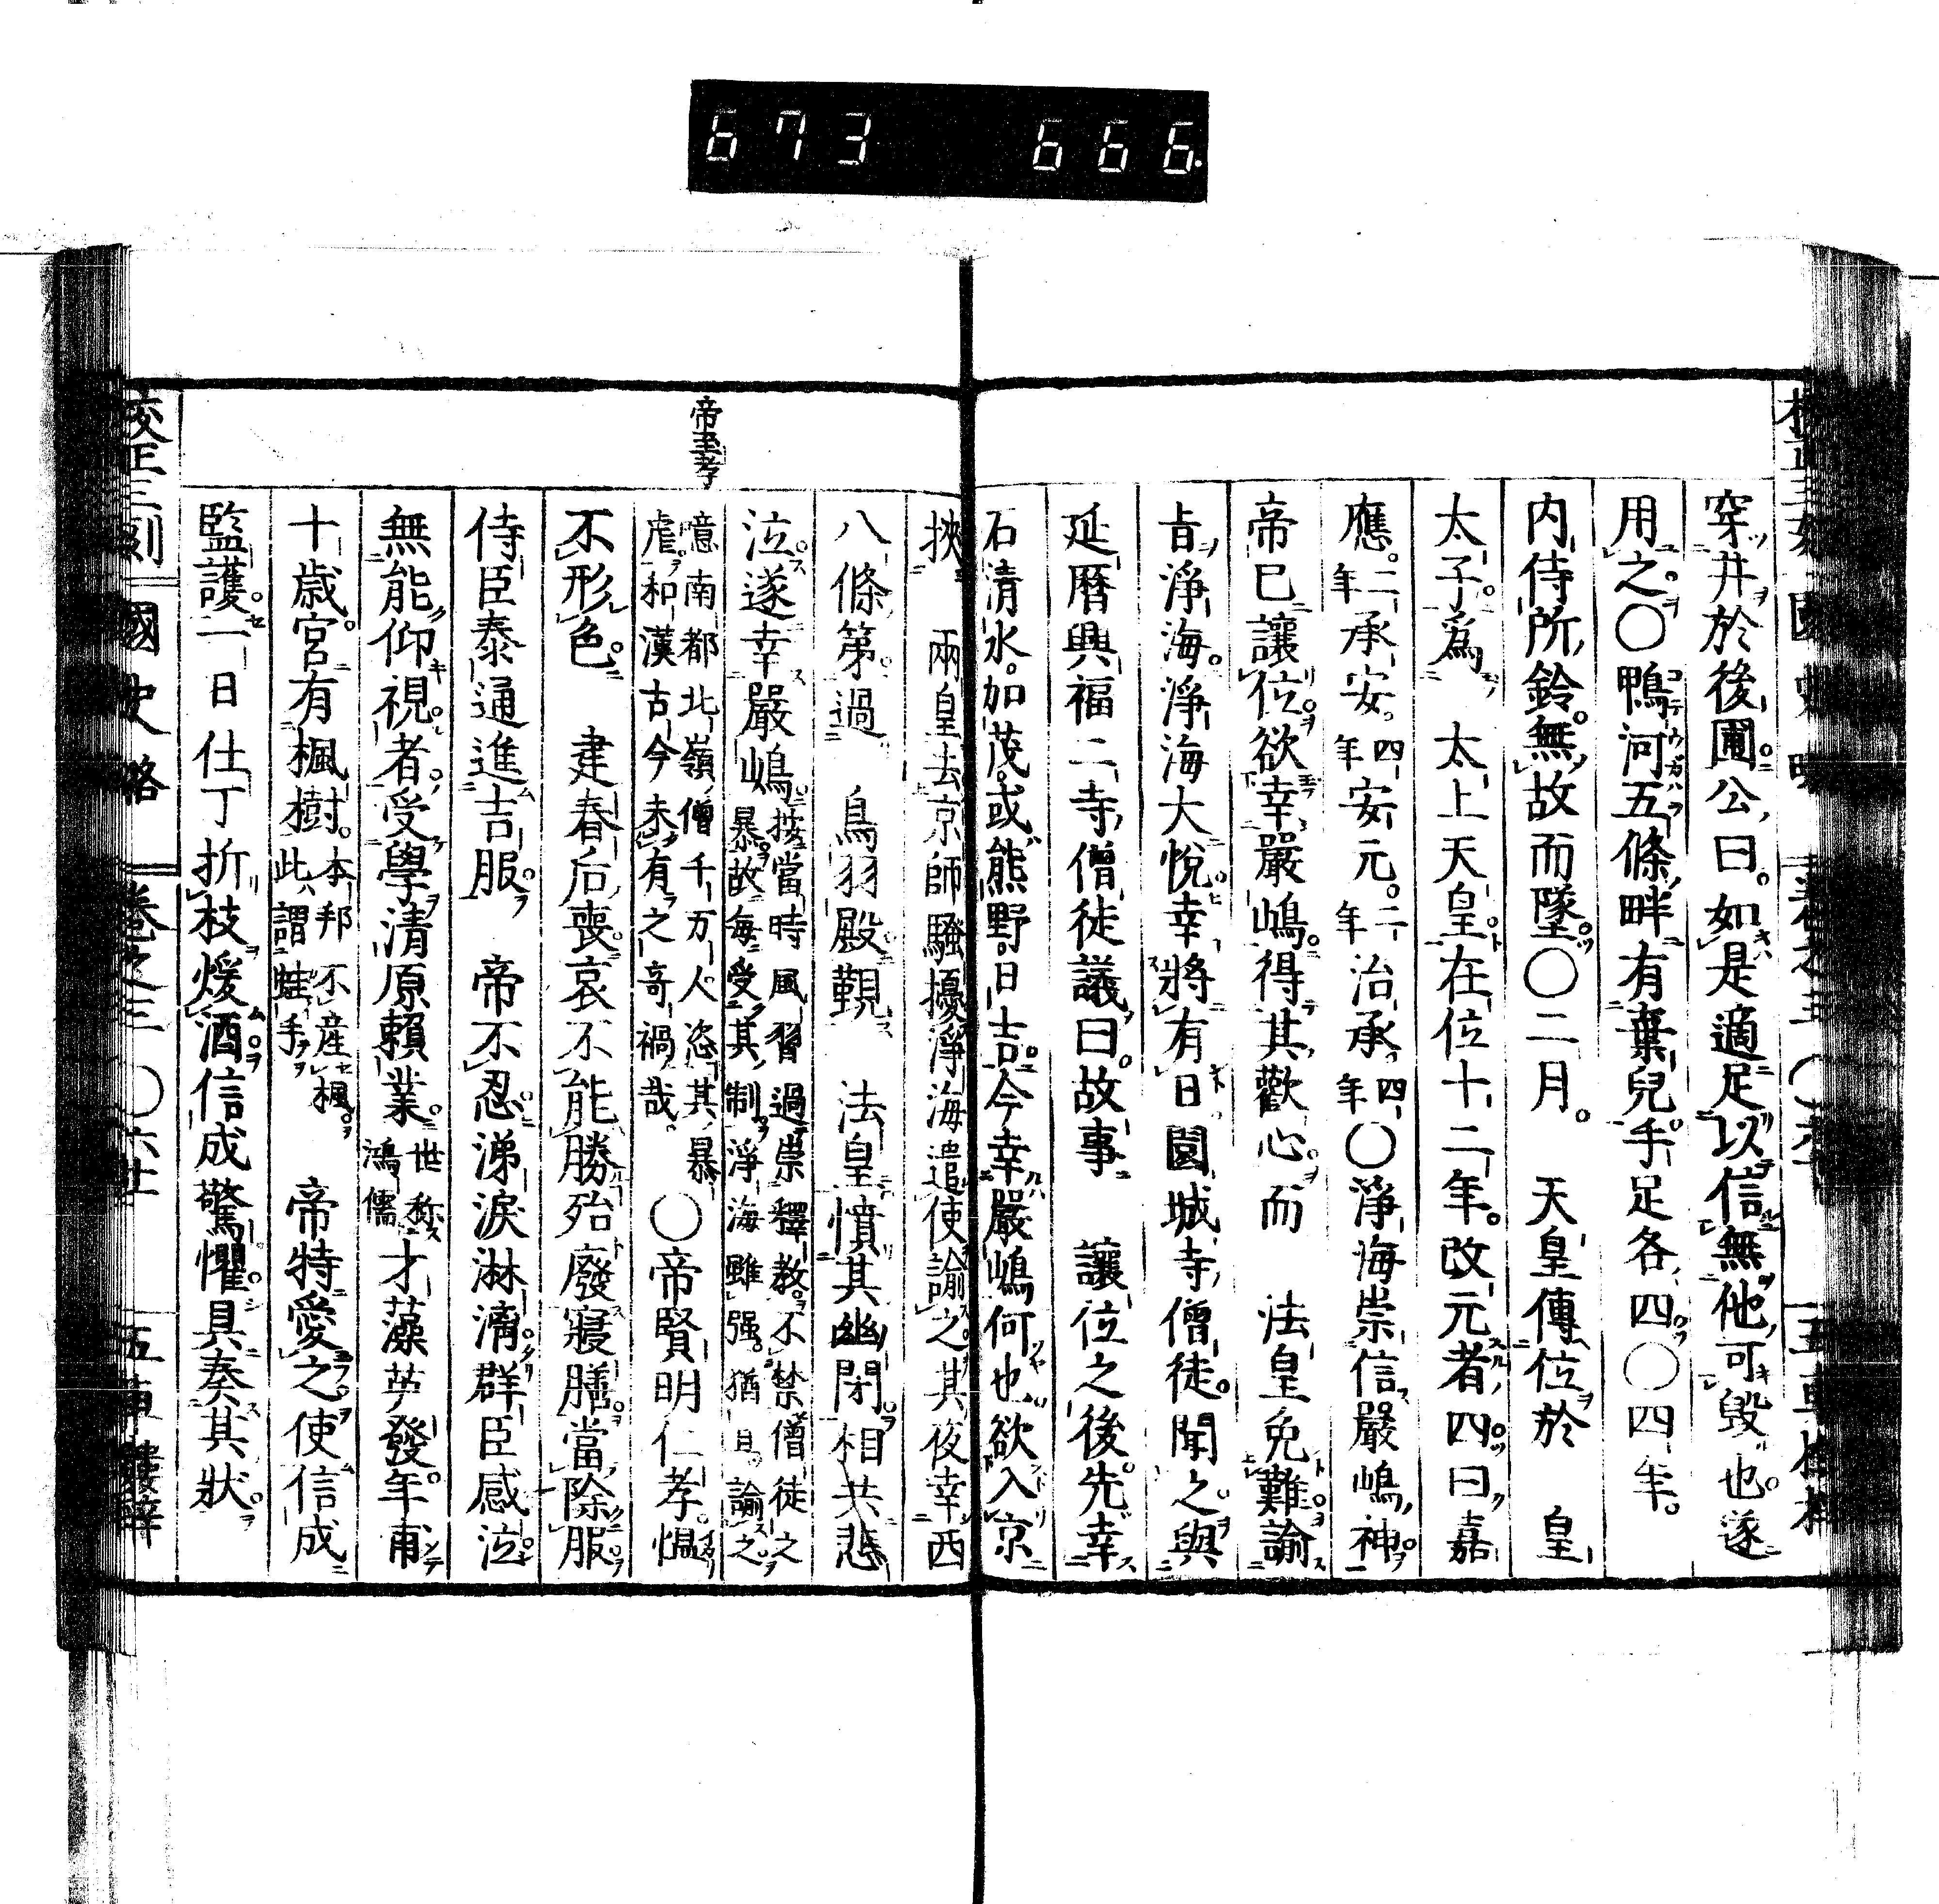 673 666.
穿井於後圃公曰如是適足以信無他可毀也遂
用之〇鴨河五條畔有棄兒手足各四〇四年
内侍所鈴無故而墜〇二月 天皇傳位於 皇
太子爲 太上天皇在位十二年改元者四曰嘉
應二年承安四年安元二年治承四年〇淨海崇信嚴嶋神
帝已讓位欲幸嚴嶋得其歡心而 法皇免難諭
旨淨海淨海大悅幸將有日園城寺僧徒聞之與
延曆興福二寺僧徒議曰故事 讓位之後先幸
石清水加茂或熊野日吉今幸嚴嶋何也欲入京
挾 兩皇去京師騷擾淨海遣使諭之其夜幸西
八條第過 鳥羽殿覲 法皇憤其幽閉相共悲
帝王孝
泣遂幸嚴嶋按當時風習過崇釋教不禁僧徒之
暴故每受其制淨海雖强猶且諭之
噫南都北嶺僧千万人恣其暴
虐和漢古今未有之奇禍哉〇帝賢明仁孝慍
不形色 建春后喪哀不能勝殆廢寢膳當除服
侍臣泰通進吉服 帝不忍涕淚淋漓群臣感泣
無能仰視者受學清原賴業世称鴻儒才藻英發年甫
十歲宮有楓樹本邦不産楓此謂蛙手 帝特愛之使信成
監護一日仕丁折枝煖酒信成驚懼具奏其狀
校正三刻 國史略 卷之三 〇六廿 五車樓梓